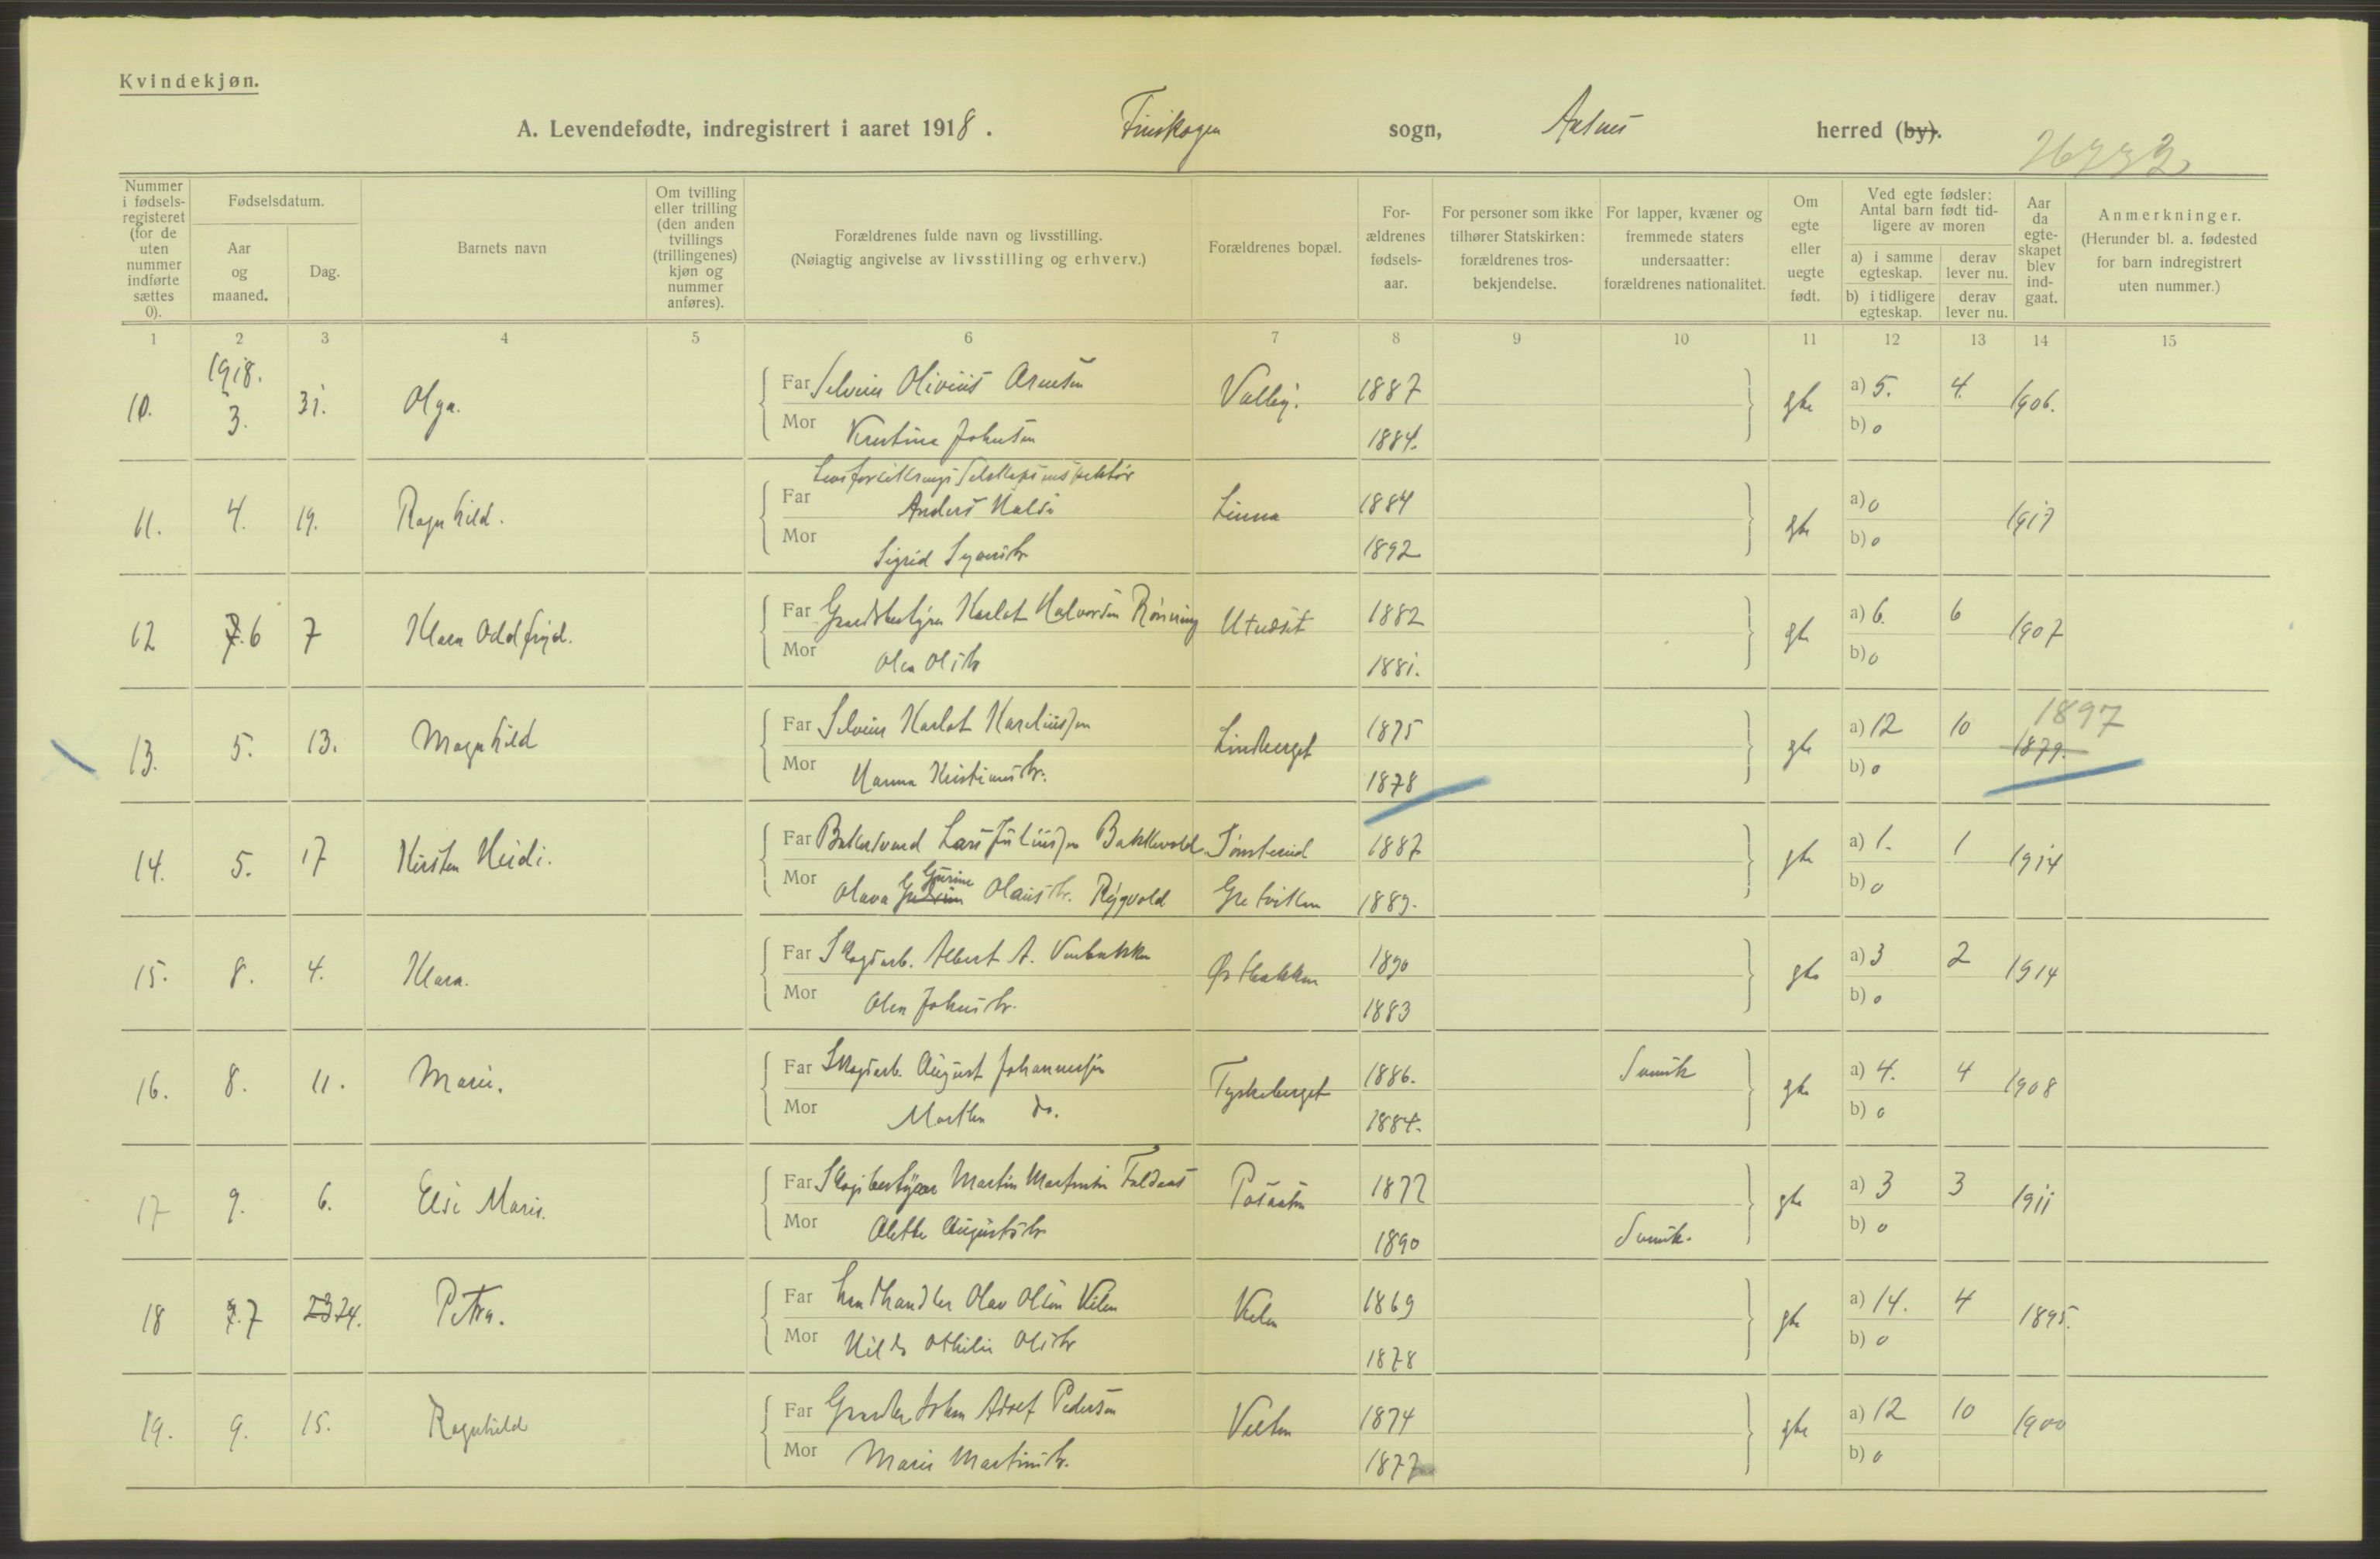 Kvindekjøn.
A. Levendefødte, indregistrert i aaret 1918. Finskogen sogn, Aasnes herred (by).
Nummer i fødselsregisteret (for de uten nummer indførte sættes 0).
Fødselsdatum.
Aar og maaned.
Dag.
Barnets navn
Om tvilling eller trilling (den anden tvillings (trillingenes) kjøn og nummer anføres).
Forældrenes fulde navn og livsstilling.
(Nøiagtig angivelse av livsstilling og erhverv.)
Forældrenes bopæl.
Forældrenes fødselsaar.
For personer som ikke tilhører Statskirken: forældrenes trosbekjendelse.
For lapper, kvæner og fremmede staters undersaatter: forældrenes nationalitet.
Om egte eller uegte født.
Ved egte fødsler: Antal barn født tidligere av moren
a) i samme egteskap.
derav lever nu.
b) i tidligere egteskap.
derav lever nu.
Aar da egteskapet blev indgaat.
Anmerkninger.
(Herunder bl. a. fødested for barn indregistrert uten nummer.)
1 2 3 4 5 6 7 8 9 10 11 12 13 14 15
1918.
10. 3. 31. Olga. Far Selveier Olivius Arnesen Valby. 1887 gte a) 5. 4. 1906.
Mor Kristine Johnsen 1884. b) 0
Livsforsikringsselskapsinspektør
11. 4. 19. Ragnhild. Far Anders Linna 1884 gte a) 0 1917
Mor Sigrid Syversdtr 1892 b) 0
12 6 7 Klara Oddfryd. Far Gaardsbestyrer Karl Halvorsen Rønning 1882 gte a) 6. 6 1907
Mor Olea Olsdtr 1881. b) 0
13. 5. 13. Magnhild Far Selveier Karl Kareliussen Lindberget 1875 gte a) 12 10 1897
1879.
Mor Hanna Kristiansdtr. 1878 b) 0
14. 5. 17 Kirsten Heidi. Far Lars Juliussen Bakkevold 1887 gte a) 1. 1 1914
Mor Olava Gurine Olausdtr. Rygvold 1889. b) 0
15. 8. 4. Klara. Far Skogsarb. Albert A. Østbakken 1890 gte a) 3 2 1914
Mor Olea Johnsdtr. 1883 b) 0
16. 8. 11. Marie. Far Skogsarb. August Johannessen Tyskeberget 1886. Svensk gte a) 4. 4 1908
Mor Marthe do. 1884. b) 0
17 9. 6. Else Marie. Far Skogbestyrer Martin Martinsen 1877 gte a) 3 3 1911
Mor Alette Augustsdtr 1890 Svensk. b) 0
18 7 24. Petra. Far Landhandler Olav Olsen Kilen Kilen 1869 gte a) 14. 4 1895.
Mor Hilda Othilie Olsdtr 1878 b) 0
19. 9. 15. Ragnhild Far Johan Adolf Pedersen 1874 gte a) 12 10 1900
Mor Marie Martinsdtr. 1877 b) 0